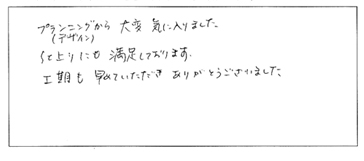 プランニングから 大変 気に入りました
(デザイン)
仕上りにも 満足しております.
工期も 早めていただき ありがとうございました